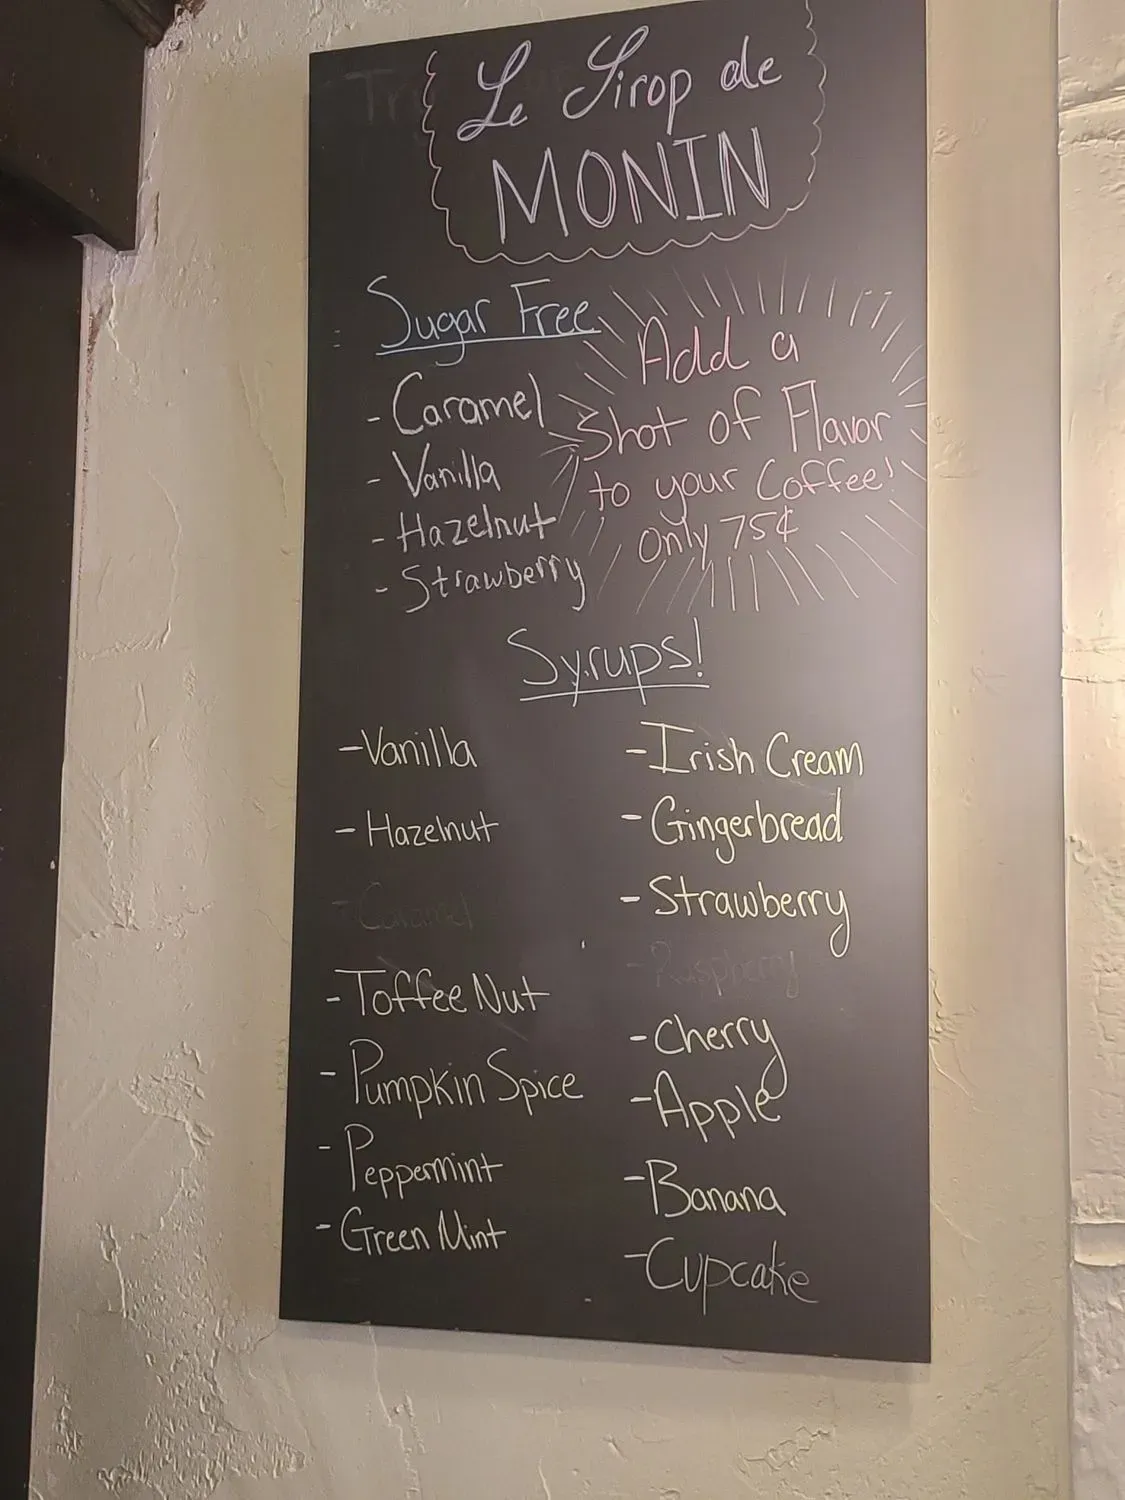 Le Sirop de
MONIN
Sugar Free
- Caramel
- Vanilla
- Hazelnut
- Strawberry
Add a
Shot of Flavor
to your Coffee!
only 75¢
Syrups!
- Vanilla
- Hazelnut
- Caramel
- Toffee Nut
- Pumpkin Spice
- Peppermint
- Green Mint
- Irish Cream
- Gingerbread
- Strawberry
- Raspberry
- Cherry
- Apple
- Banana
- Cupcake